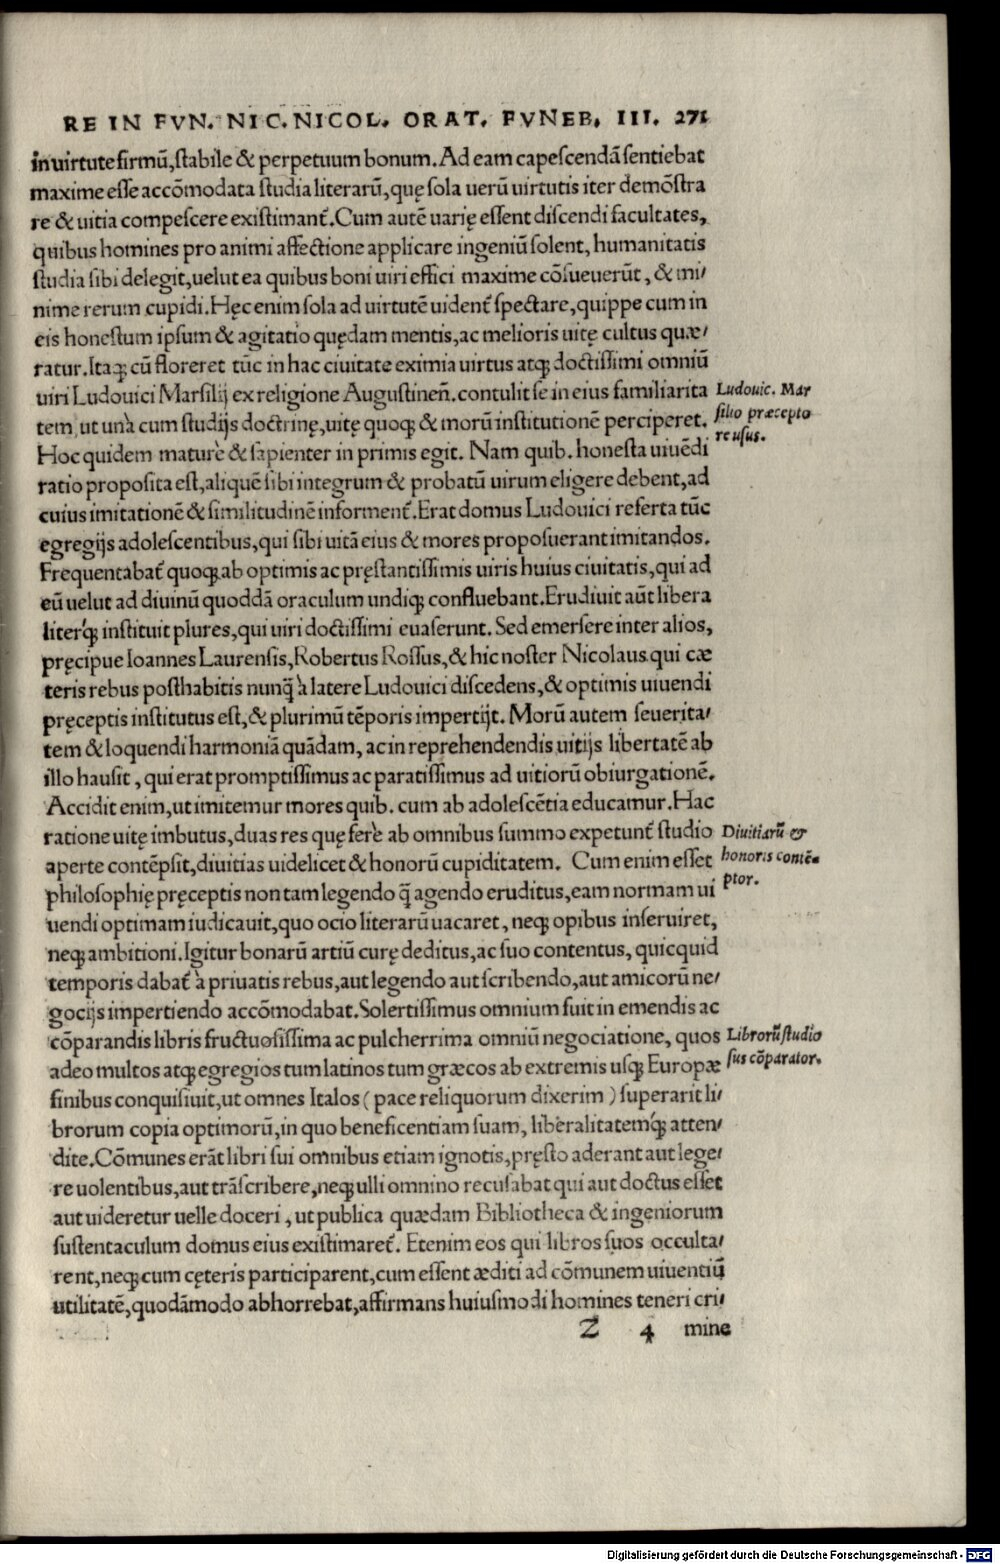 RE IN FVN. NIC. NICOL. ORAT. FVNEB. III. 271
in uirtute firmũ, stabile & perpetuum bonum. Ad eam capescendã sentiebat
maxime esse accõmodata studia literarũ, quę sola uerũ uirtutis iter demõstra
re & uitia compescere existimant̃. Cum autẽ uarię essent discendi facultates,
quibus homines pro animi affectione applicare ingeniũ solent, humanitatis
studia sibi delegit, uelut ea quibus boni uiri effici maxime cõsueuerũt, & mi/
nime rerum cupidi. Hęc enim sola ad uirtutẽ uident̃ spectare, quippe cum in
eis honestum ipsum & agitatio quędam mentis, ac melioris uitę cultus quæ/
ratur. Itaq; cũ floreret tũc in hac ciuitate eximia uirtus atq; doctissimi omniũ
uiri Ludouici Marsilij ex religione Augustineñ. contulit se in eius familiarita
tem, ut unà cum studijs doctrinę, uitę quoq; & morũ institutionẽ perciperet.
Hoc quidem maturè & sapienter in primis egit. Nam quib. honesta uiuẽdi
ratio proposita est, aliquẽ sibi integrum & probatũ uirum eligere debent, ad
cuius imitationẽ & similitudinẽ informent̃. Erat domus Ludouici referta tũc
egregijs adolescentibus, qui sibi uitã eius & mores proposuerant imitandos.
Frequentabat̃ quoq; ab optimis ac pręstantissimis uiris huius ciuitatis, qui ad
eũ uelut ad diuinũ quoddã oraculum undiq; confluebant. Erudiuit aũt libera
literq́; instituit plures, qui uiri doctissimi euaserunt. Sed emersere inter alios,
pręcipue Ioannes Laurensis, Robertus Rossus, & hic noster Nicolaus qui cæ
teris rebus posthabitis nunq̃ à latere Ludouici discedens, & optimis uiuendi
pręceptis institutus est, & plurimũ tẽporis impertijt. Morũ autem seuerita/
tem & loquendi harmoniã quãdam, ac in reprehendendis uitijs libertatẽ ab
illo hausit, qui erat promptissimus ac paratissimus ad uitiorũ obiurgationẽ.
Accidit enim, ut imitemur mores quib. cum ab adolescẽtia educamur. Hac
ratione uitę imbutus, duas res quę ferè ab omnibus summo expetunt̃ studio
aperte contẽpsit, diuitias uidelicet & honorũ cupiditatem. Cum enim esset
philosophię pręceptis non tam legendo q̃ agendo eruditus, eam normam ui
uendi optimam iudicauit, quo ocio literarũ uacaret, neq; opibus inseruiret,
neq; ambitioni. Igitur bonarũ artiũ curę deditus, ac suo contentus, quicquid
temporis dabat̃ à priuatis rebus, aut legendo aut scribendo, aut amicorũ ne/
gocijs impertiendo accõmodabat. Solertissimus omnium fuit in emendis ac
cõparandis libris fructuosissima ac pulcherrima omniũ negociatione, quos
adeo multos atq; egregios tum latinos tum græcos ab extremis usq; Europæ
finibus conquisiuit, ut omnes Italos (pace reliquorum dixerim) superarit li/
brorum copia optimorũ, in quo beneficentiam suam, liberalitatemq́; atten/
dite. Cõmunes erãt libri sui omnibus etiam ignotis, pręsto aderant aut lege/
re uolentibus, aut trãscribere, neq; ulli omnino recusabat qui aut doctus esset
aut uideretur uelle doceri, ut publica quædam Bibliotheca & ingeniorum
sustentaculum domus eius existimaret̃. Etenim eos qui libros suos occulta/
rent, neq; cum cęteris participarent, cum essent æditi ad cõmunem uiuentiũ
utilitatẽ, quodãmodo abhorrebat, affirmans huiusmodi homines teneri cri/
Z 4 mine
Ludouic. Mar
silio præcepto
re usus.
Diuitiarũ &
honoris contẽ=
ptor.
Librorũ studio
sus cõparator.
Digitalisierung gefördert durch die Deutsche Forschungsgemeinschaft - DFG